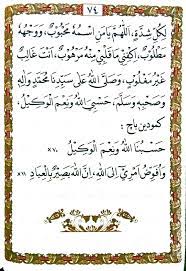 ٧٤
لِكُلِّ شِدَّةٍ، اَللّٰهُمَّ يَا مَنِ اسْمُهُ مَحْبُوْبٌ، وَوَجْهُهُ
مَطْلُوْبٌ، اِكْفِنِيْ مَا قَلْبِيْ مِنْهُ مَرْهُوْبٌ، اَنْتَ غَالِبٌ
غَيْرُ مَغْلُوْبٍ، وَصَلَّى اللهُ عَلَى سَيِّدِنَا مُحَمَّدٍ وَآلِهِ
وَصَحْبِهِ وَسَلَّمَ، حَسْبِيَ اللهُ وَنِعْمَ الْوَكِيْلُ.
كمودين باج :
حَسْبُنَا اللهُ وَنِعْمَ الْوَكِيْلُ ×٧
وَاُفَوِّضُ اَمْرِيْ اِلَى اللهِ، اِنَّ اللهَ بَصِيْرٌ بِالْعِبَادِ